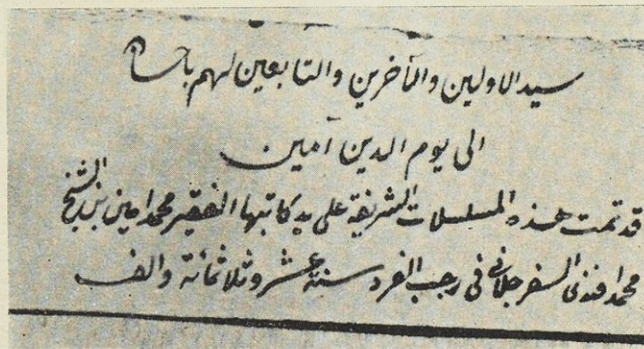 سيد الاولين والآخرين والتابعين لهم باحسان
الى يوم الدين آمين
قد تمت هذه المسلسلات الشريفة على يد كاتبها الفقير محمد امين بن الشيخ
محمد افندى السفرجلاني في رجب الفرد سنة عشر وثلاثمائة والف